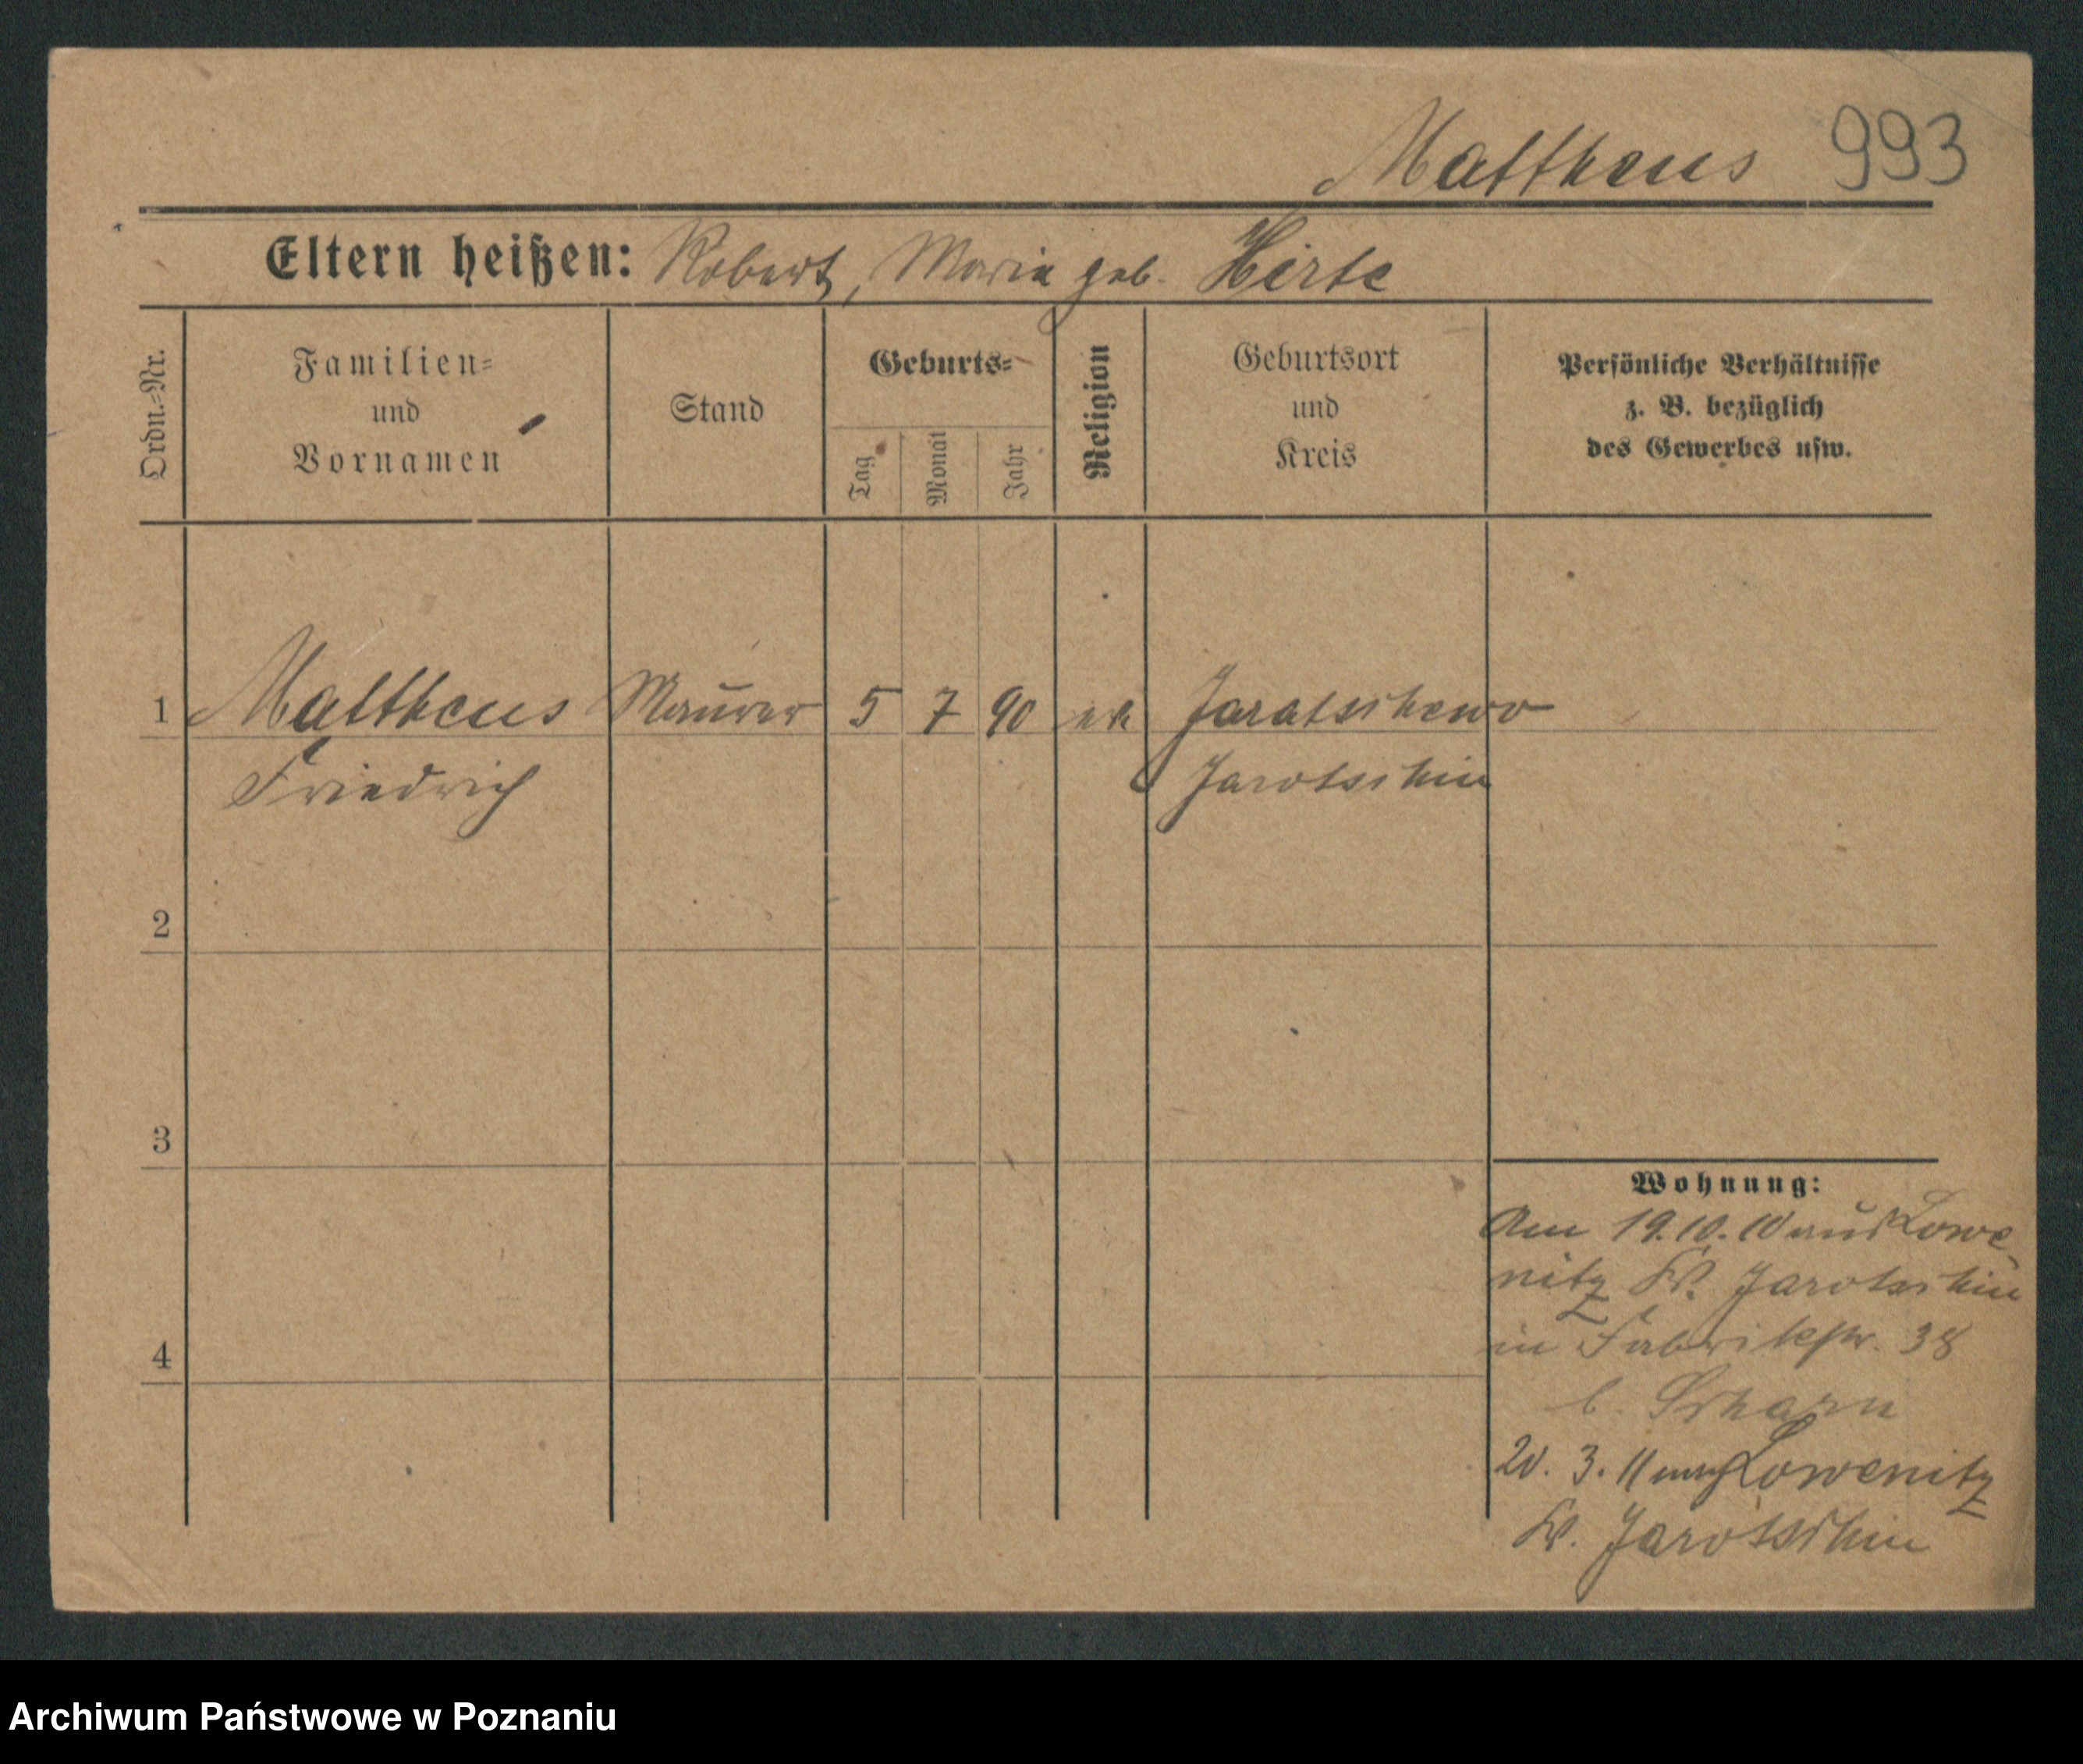 Mattheus 993
Eltern heißen: Robert, Maria geb. Hirte
Ordn.=Nr.
Familien=
und
Vornamen
Stand
Geburts=
Tag
Monat
Jahr
Religion
Geburtsort
und
Kreis
Persönliche Verhältnisse
z. B. bezüglich
des Gewerbes usw.
1 Mattheus Maurer 5 7 90 ev Jaratschewo
Friedrich Jarotschin
2
3
4
Wohnung:
Am 19.10.10 aus Lowe-
nitz Kr. Jarotschin
in Fabrikstr. 38
b. Scharn
20. 3. 11 nach Lowenitz
Kr. Jarotschin
Archiwum Państwowe w Poznaniu